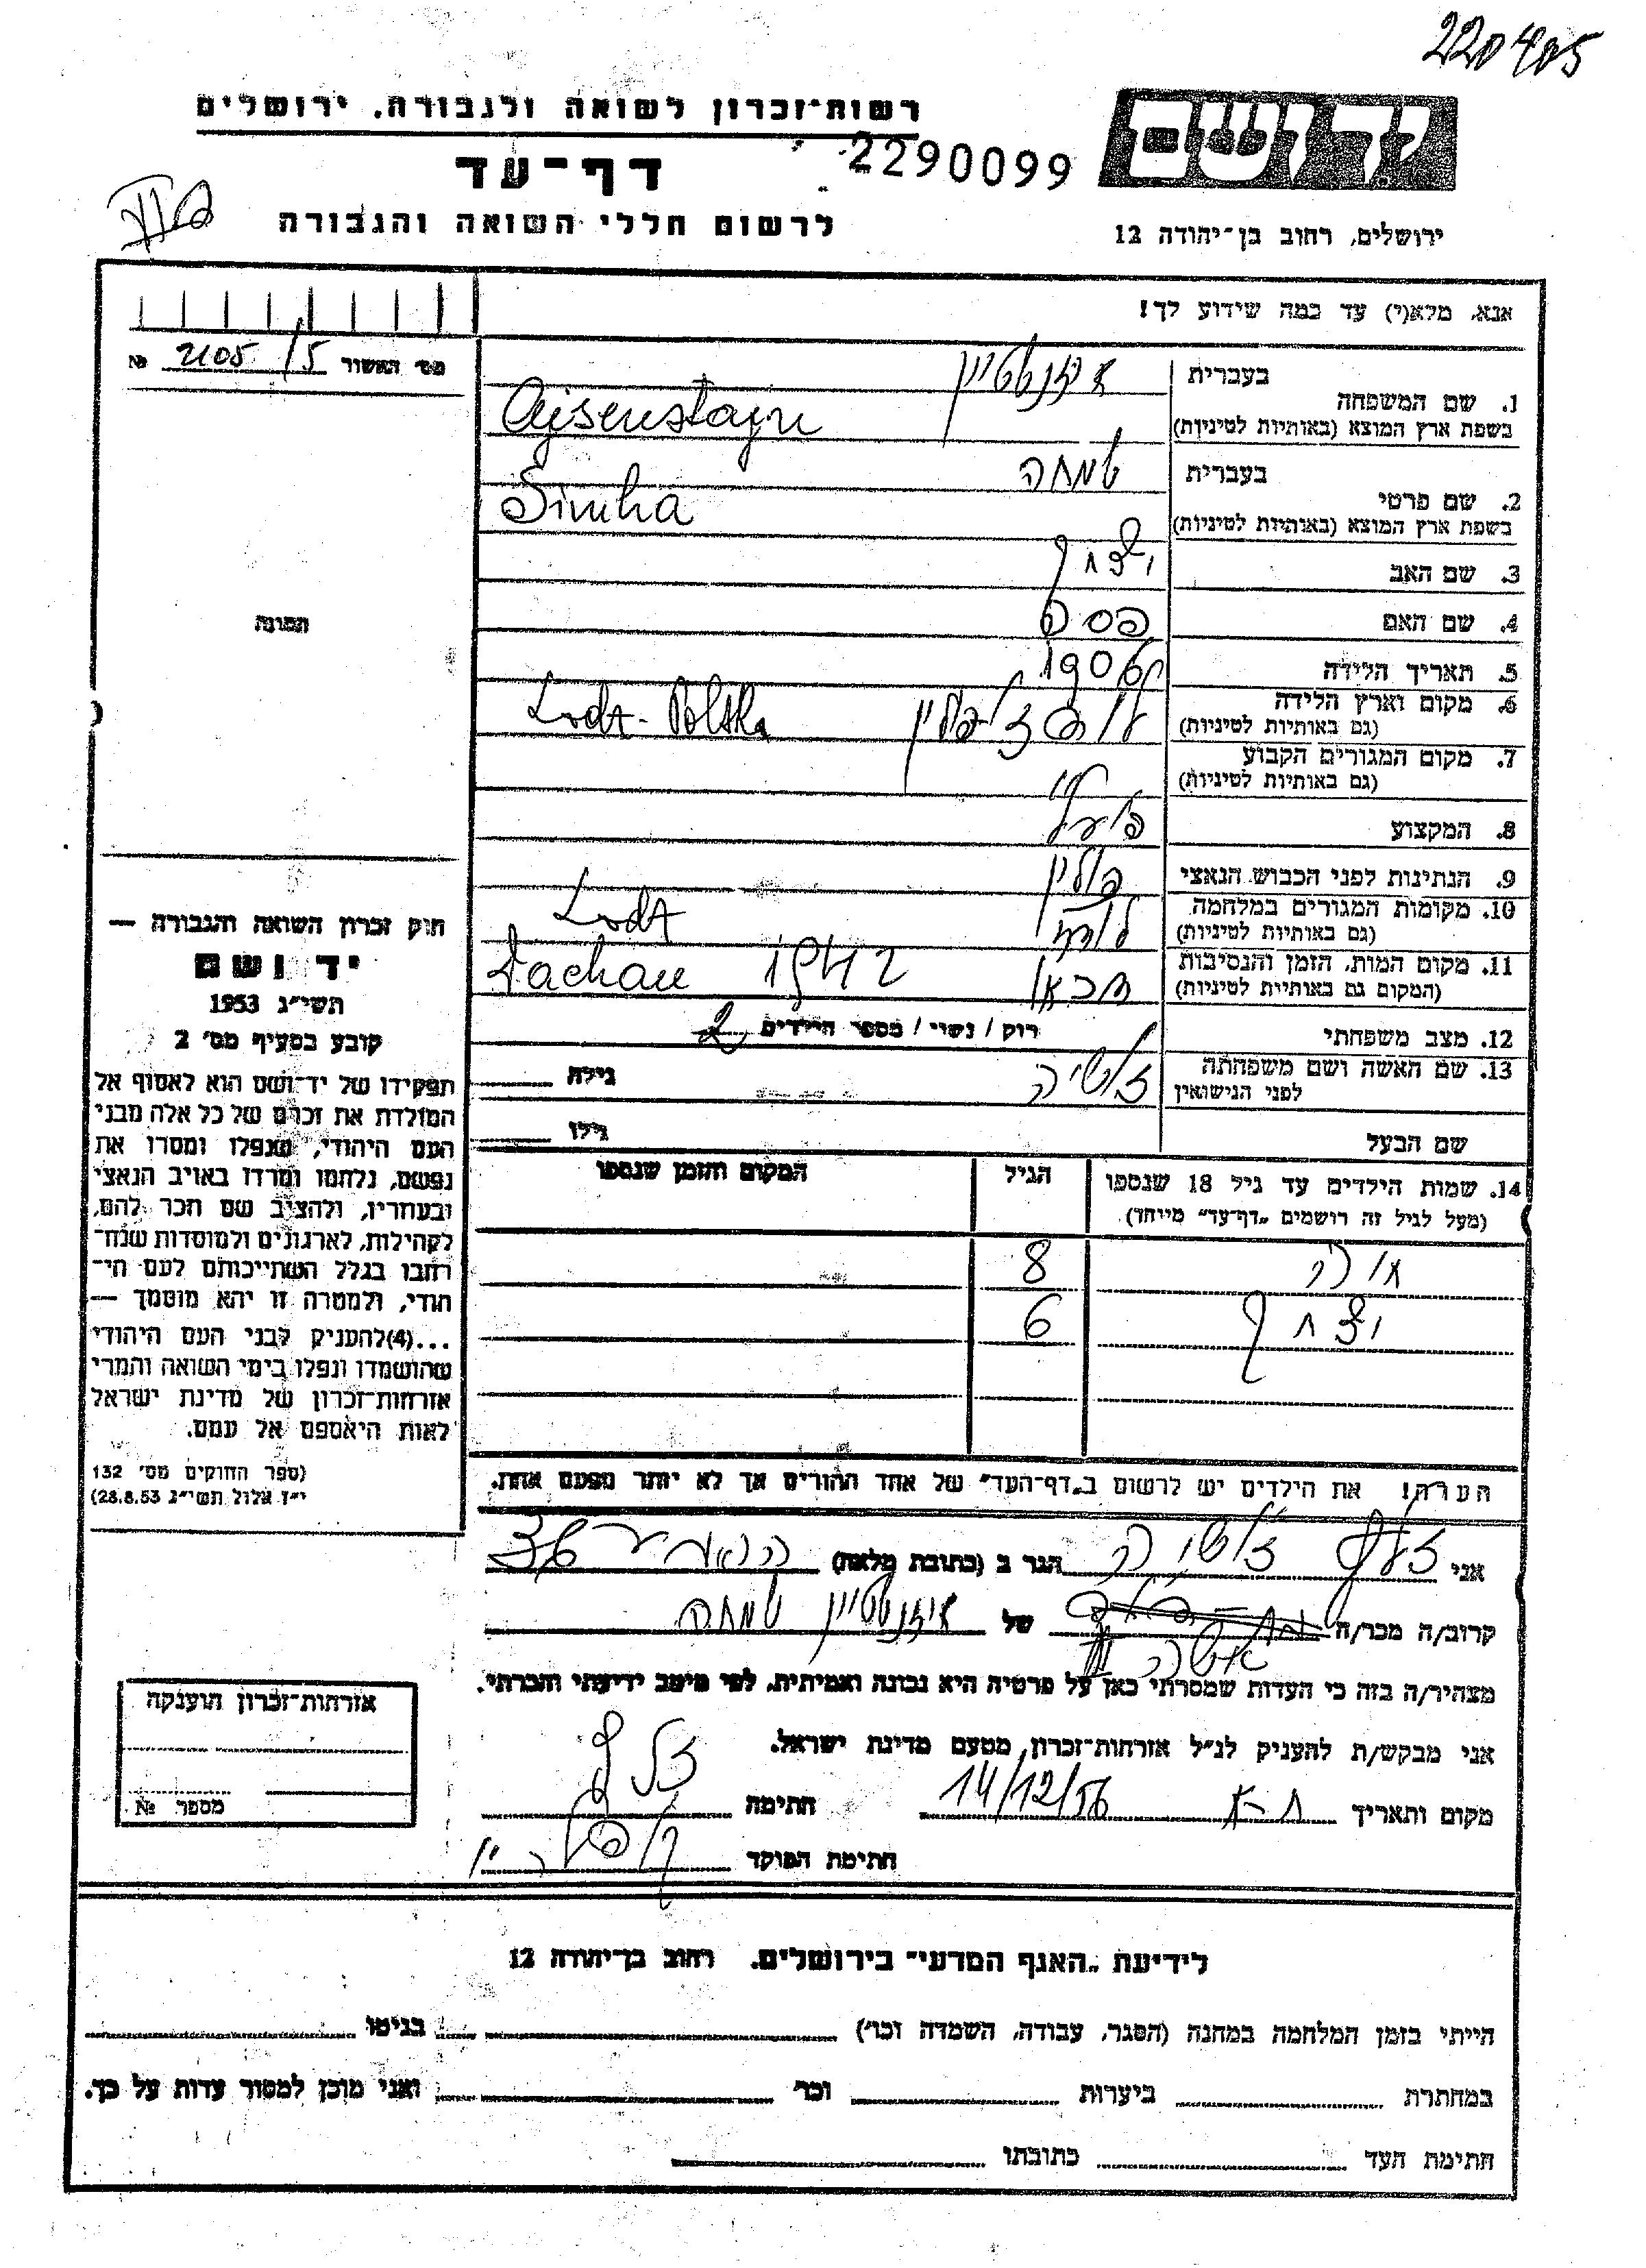 220405
רשות-זכרון לשואה ולגבורה, ירושלים
יד ושם
דף-עד
2290099
לרשום חללי השואה והגבורה
ירושלים, רחוב בן-יהודה 12
אנא, מלא(י) עד כמה שידוע לך!
מס' האשור 5/2105 №
1. שם המשפחה
בעברית איזנשטיין
בשפת ארץ המוצא (באותיות לטיניות) Ajsenstajn
2. שם פרטי
בעברית שמחה
בשפת ארץ המוצא (באותיות לטיניות) Simha
3. שם האב יצחק
4. שם האם
תמונה
5. תאריך הלידה 1906
6. מקום וארץ הלידה
(גם באותיות לטיניות) לודז פולין Lodz - Polska
7. מקום המגורים הקבוע
(גם באותיות לטיניות)
8. המקצוע פועל
9. הנתינות לפני הכבוש הנאצי פולין
10. מקומות המגורים במלחמה
(גם באותיות לטיניות) לודז Lodz
11. מקום המות, הזמן והנסיבות
(המקום גם באותיות לטיניות) דכאו 1942 Dachau
12. מצב משפחתי רוק / נשוי / מספר הילדים 2
13. שם האשה ושם משפחתה
לפני הנישואין גילה
שם הבעל גילו
14. שמות הילדים עד גיל 18 שנספו
(מעל לגיל זה רושמים "דף-עד" מייוחד)
הגיל
המקום והזמן שנספו
8
יצחק 6
הערה! את הילדים יש לרשום ב"דף-העד" של אחד ההורים אך לא יותר מפעם אחת.
חוק זכרון השואה והגבורה —
יד ושם
תשי״ג 1953
קובע בסעיף מס' 2
תפקידו של יד-ושם הוא לאסוף אל
המולדת את זכרם של כל אלה מבני
העם היהודי, שנפלו ומסרו את
נפשם, נלחמו ומרדו באויב הנאצי
ובעוזריו, ולהציב שם וזכר להם,
לקהילות, לארגונים ולמוסדות שנח-
רחבו בגלל השתייכותם לעם הי-
הודי, ולמטרה זו יהא מוסמך —
...(4)להעניק לבני העם היהודי
שהושמדו ונפלו בימי השואה והמרי
אזרחות-זכרון של מדינת ישראל
לאות היאספם אל עמם.
(ספר החוקים מס' 132
י״ז אלול תשי״ג 28.8.53)
אני הגר ב (כתובת מלאה)
קרוב/ה מכר/ה אשה של איזנשטיין שמחה
מצהיר/ה בזה כי העדות שמסרתי כאן על פרטיה היא נכונה ואמיתית, לפי מיטב ידיעתי והכרתי.
אני מבקש/ת להעניק לנ״ל אזרחות-זכרון מטעם מדינת ישראל.
מקום ותאריך ת-א 14/12/56 חתימה
חתימת הפוקד
אזרחות-זכרון הוענקה
מספר №
לידיעת "האגף המדעי" בירושלים. רחוב בן-יהודה 12
הייתי בזמן המלחמה במחנה (הסגר, עבודה, השמדה וכו') בגיטו
במחתרת ביערות וכו' ואני מוכן למסור עדות על כך.
חתימת העד כתובתו